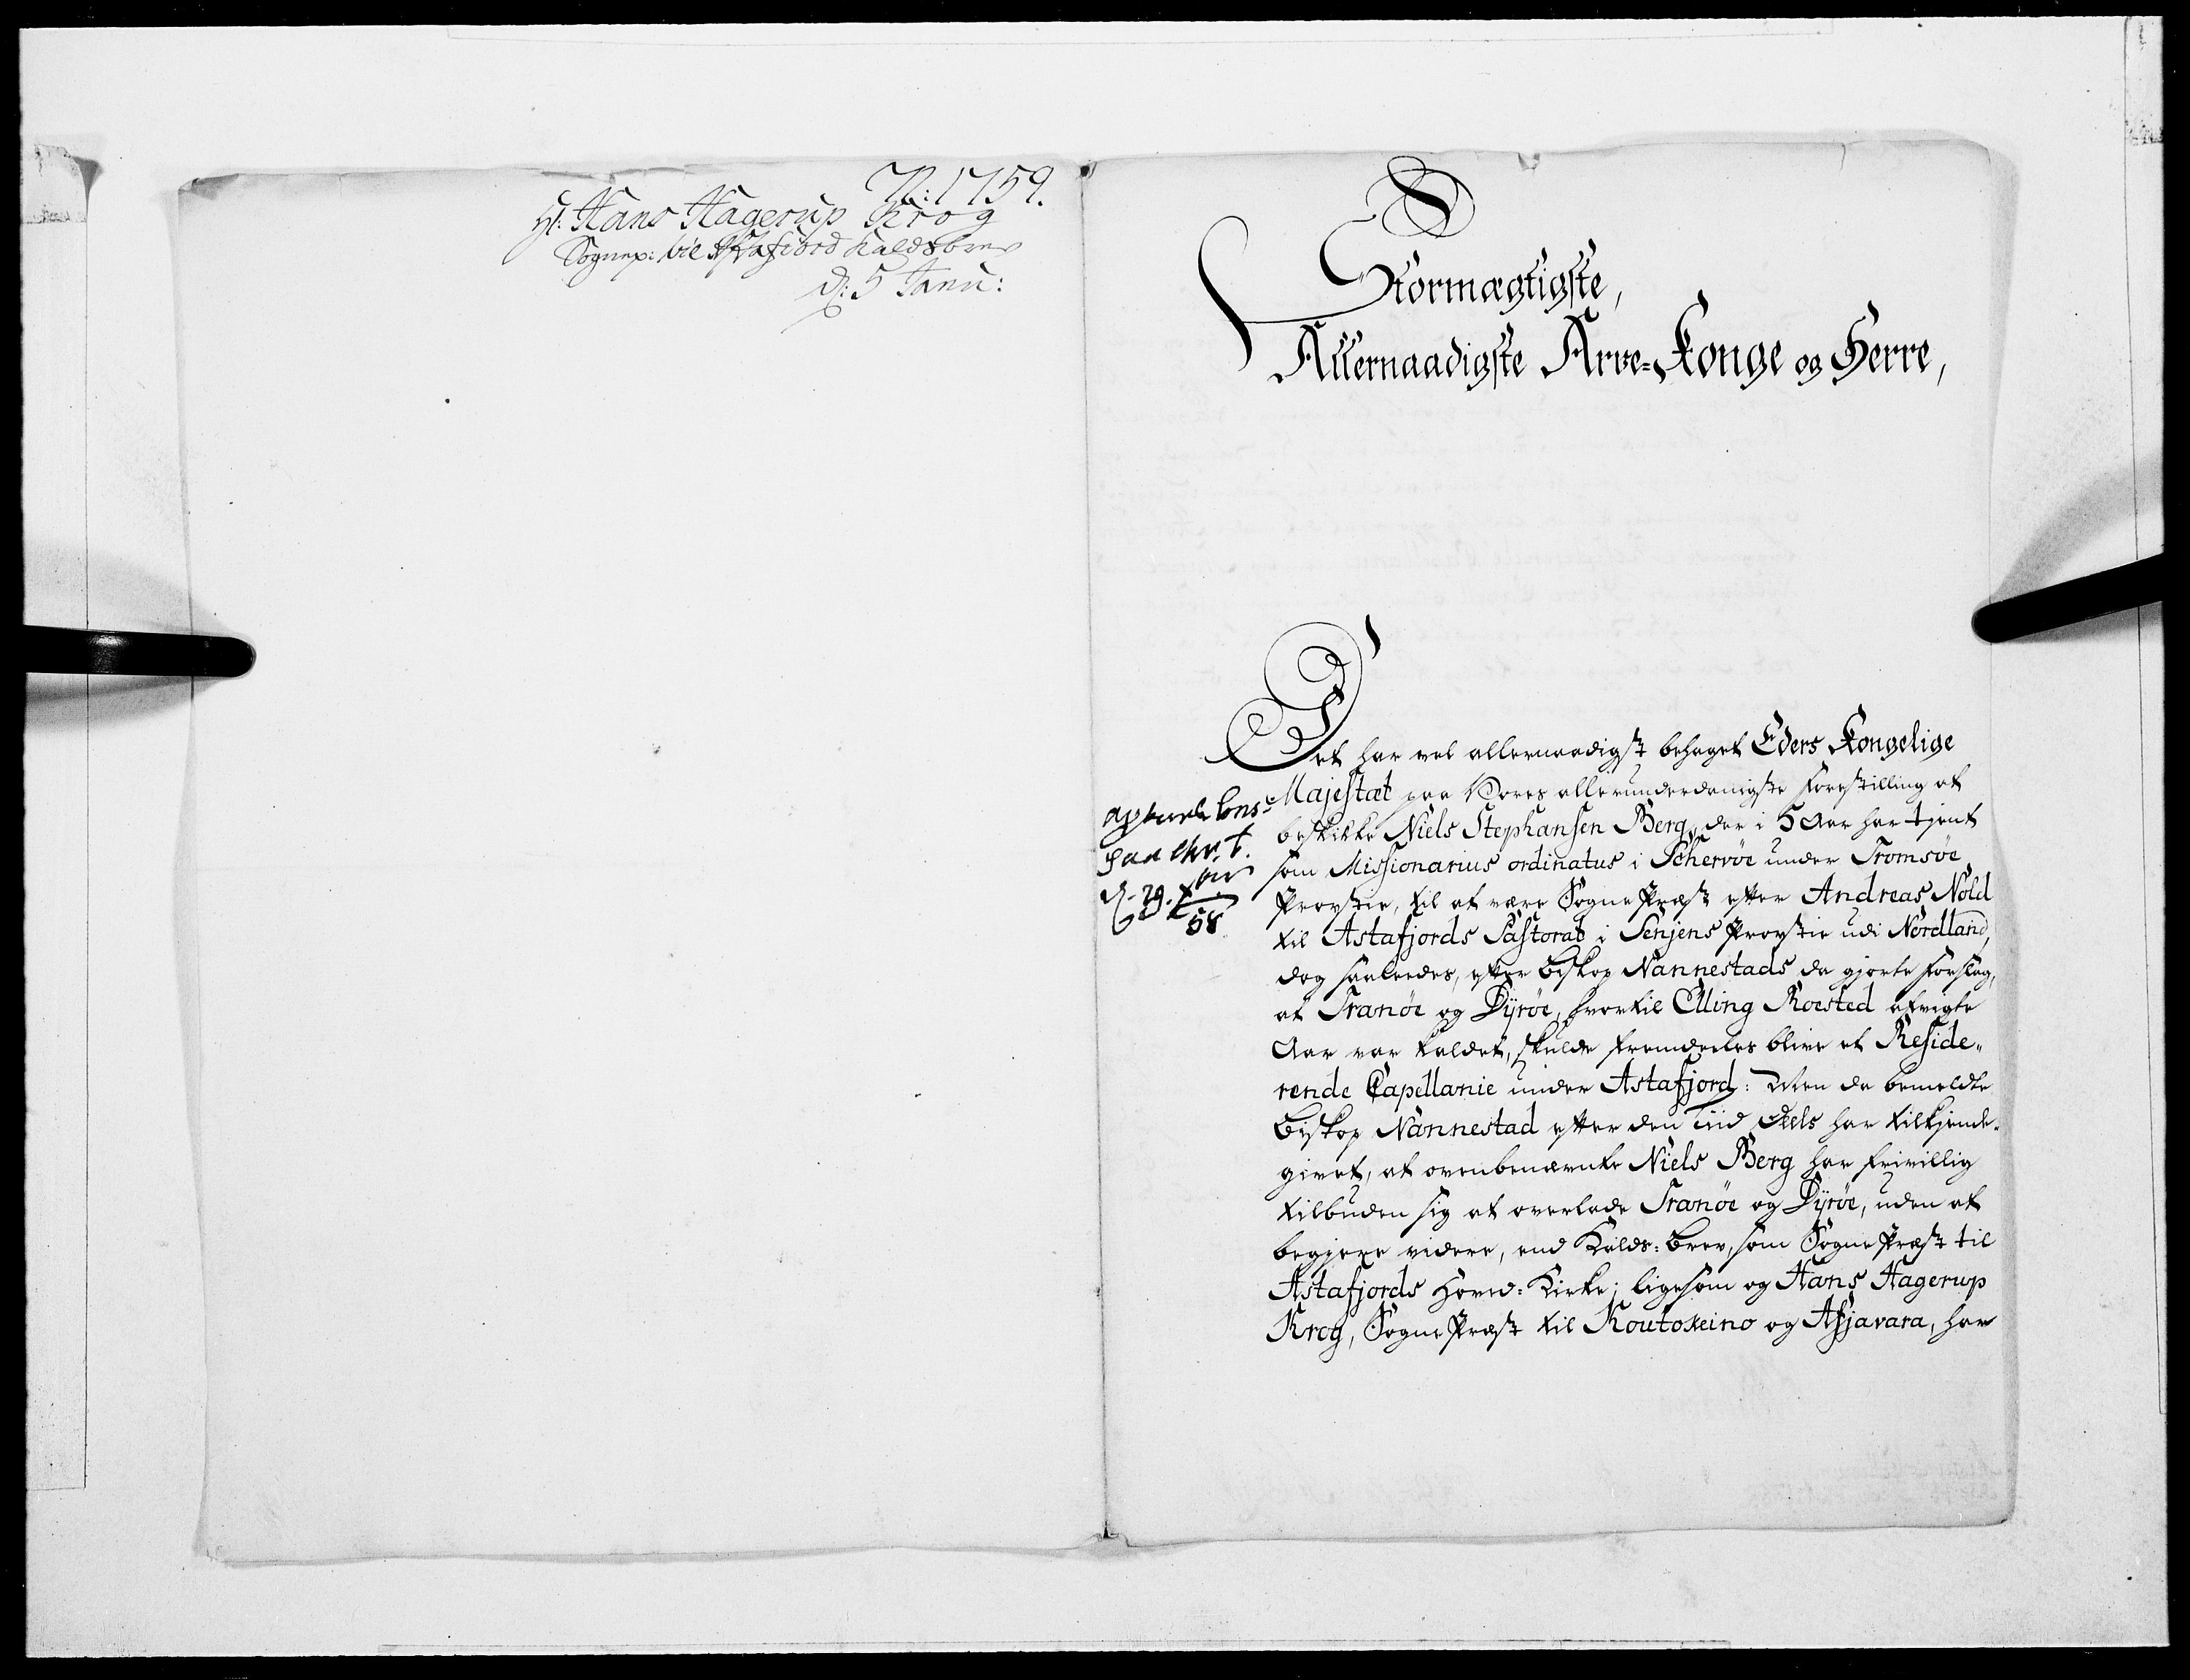 N: 1759.
Hr: Hans Hagerup Krog
Sognep: til Astafiord Kaldsbrev
d: 5 Janu:
Stormægtigste,
Allernaadigste Arve-Konge og Herre,
Det har vel allernaadigst behaget Eders Kongelige
Majestæt paa Vores allerunderdanigste Forestilling at
beskikke Niels Stephansen Berg, der i 5 Aar har tjent
som Missionarius ordinatus i Schervöe under Tromsöe
Provstie, til at være Sogne Præst efter Andreas Nold
til Astafjords Pastorat i Senjens Provstie udi Nordland,
dog saaledes, efter Biskop Nannestads da gjorte Forslag,
at Tranöe og Dyröe, hvortil Elling Roested afvigte
Aar var kaldet, skulde fremdeeles blive et Reside-
rende Capellanie under Astafjord: Men da bemeldte
Biskop Nannestad efter den Tiid Deels har tilkjende-
givet, at ovenbenævnte Niels Berg har frivillig
tilbuden sig at overlade Tranöe og Dyröe, uden at
begjere videre, end Kalds-Brev, som Sogne Præst til
Astafjords Hoved-Kirke; ligesom og Hans Hagerup
Krog, Sogne Præst til Koutokeino og Afjavara, har
d. 29. Xbr
58